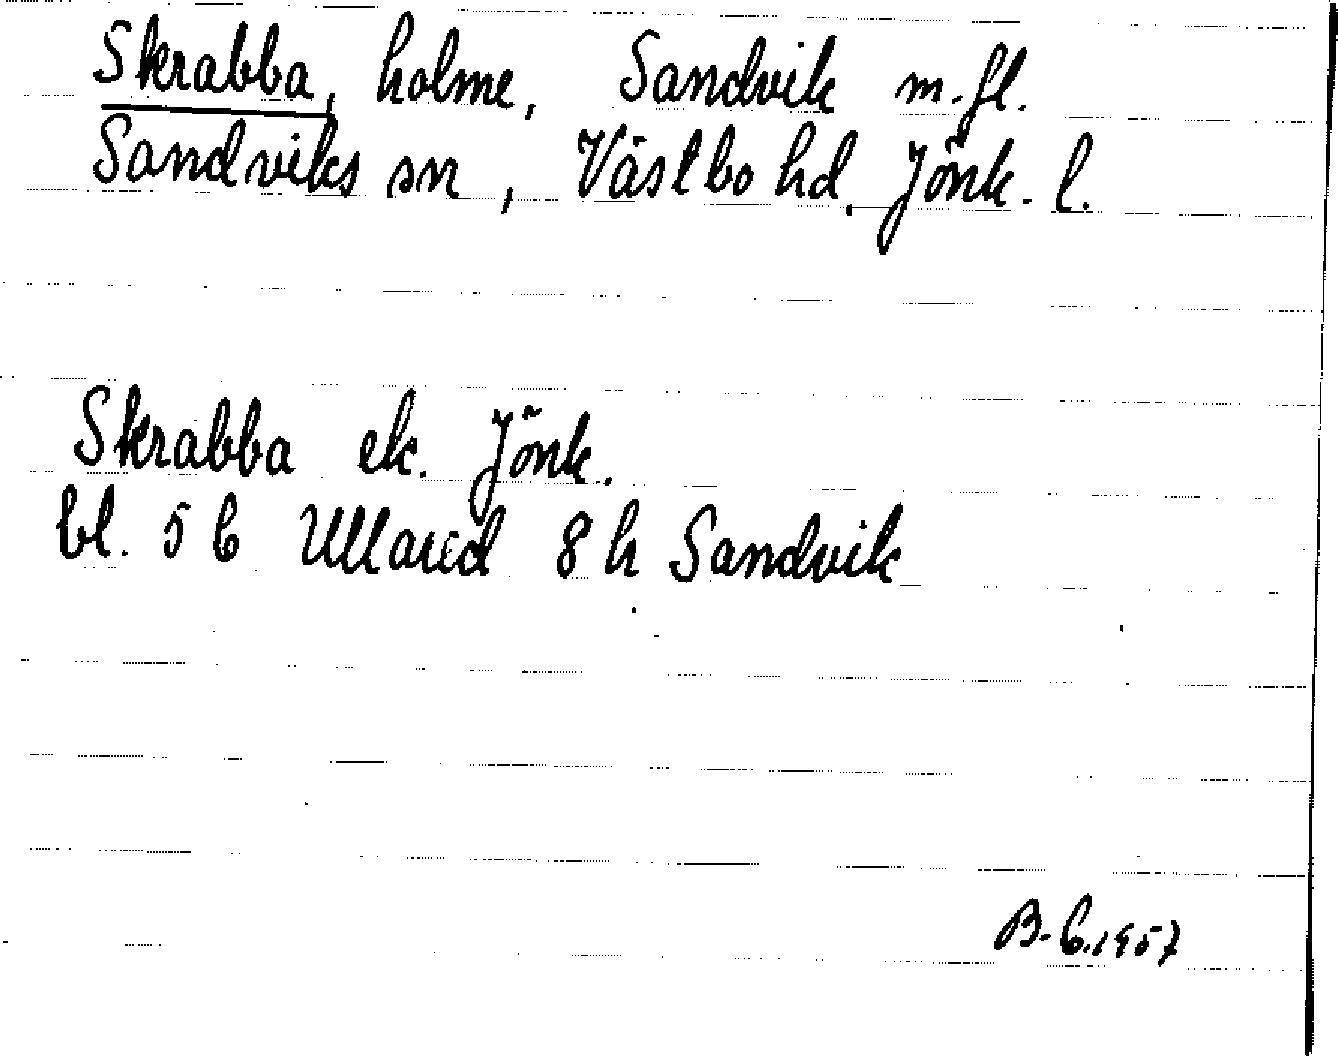 Skrabba, holme, Sandvik m.fl.
Sandviks sn, Västbo hd, Jönk. l.
Skrabba ek. Jönk.
bl. 5 6 Ullared 8 h Sandvik
B-b.1957